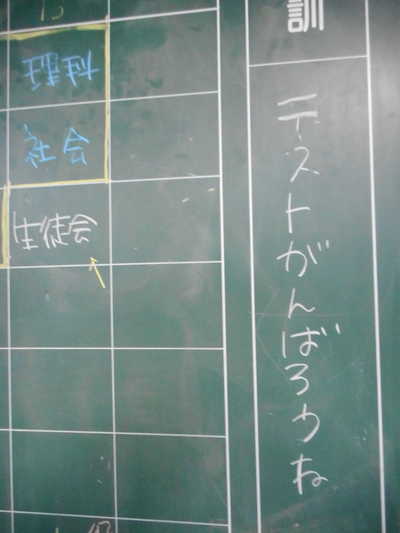 訓
テストがんばろうね
15
理科
社会
生徒会